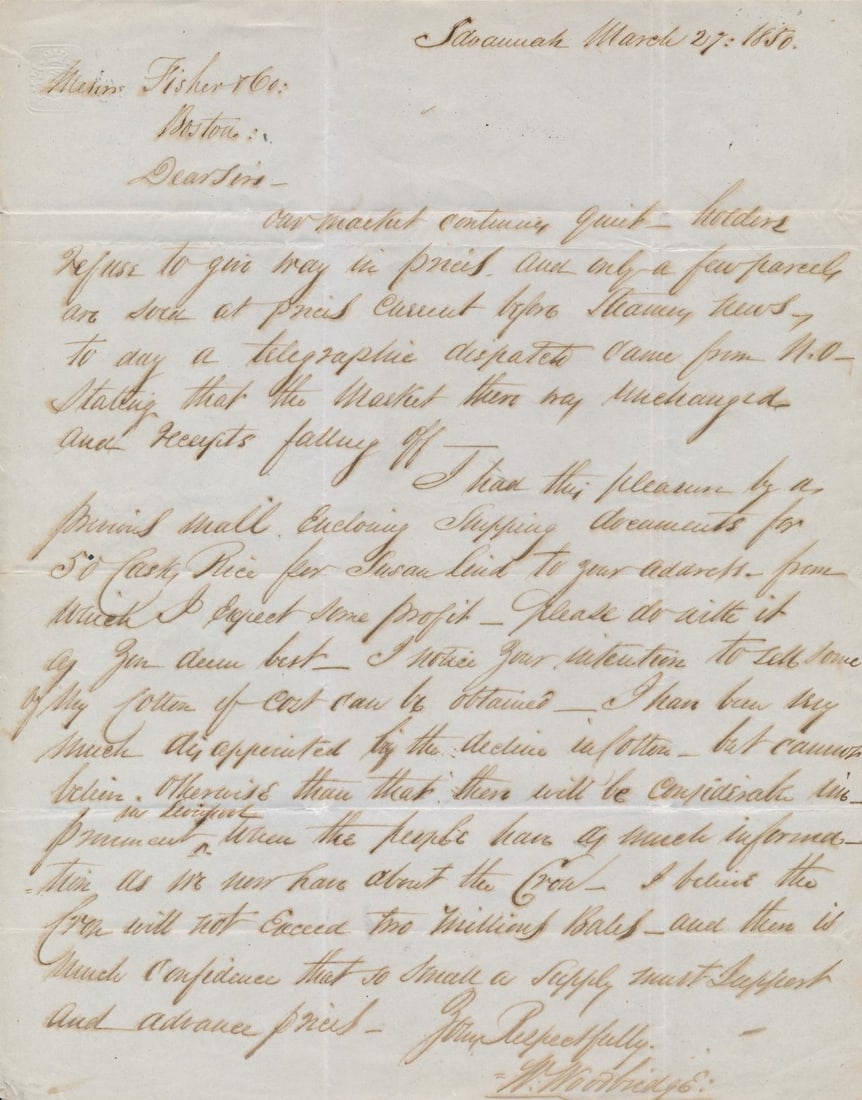 Savannah March 27: 1850.
Messrs Fisher & Co:
Boston:
Dear Sirs —
our market continues quiet — holders
refuse to give way in prices. and only a few parcels
are sold at prices current before Steamers news —
to day a telegraphic dispatch came from N.O —
stating that the market there was unchanged
and receipts falling off —
I had this pleasure by a
previous mail. Enclosing Shipping documents for
50 Casks Rice per Susan to your address — from
which I expect some profit — please do with it
as you deem best — I notice your intention to sell some
of my Cotton if cost can be obtained — I have been very
much disappointed by the decline in Cotton — but cannot
believe. otherwise than that there will be considerable im-
in Liverpool
provement when the people have as much informa-
-tion as we now have about the Crop — I believe the
Crop will not Exceed two millions Bales — and there is
much confidence that so small a supply must support
and advance prices —
Yours Respectfully.
W. Woodbridge: